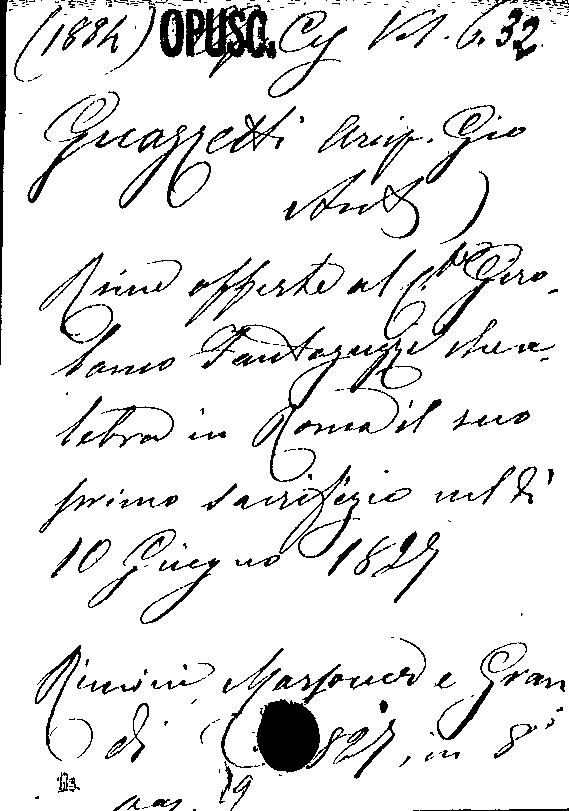 (1884) OPUSC. Cg Vol. 6. 32
Guazzetti Arcip. Gio
Ant )
Rime offerte al C.te Giro-
lamo Fantaguzzi che ce-
lebra in Roma il suo
primo sacrifizio nel dì
10 Giugno 1827
Rimini, Marsoner e Gran
di 1827, in 8°
pag. 19